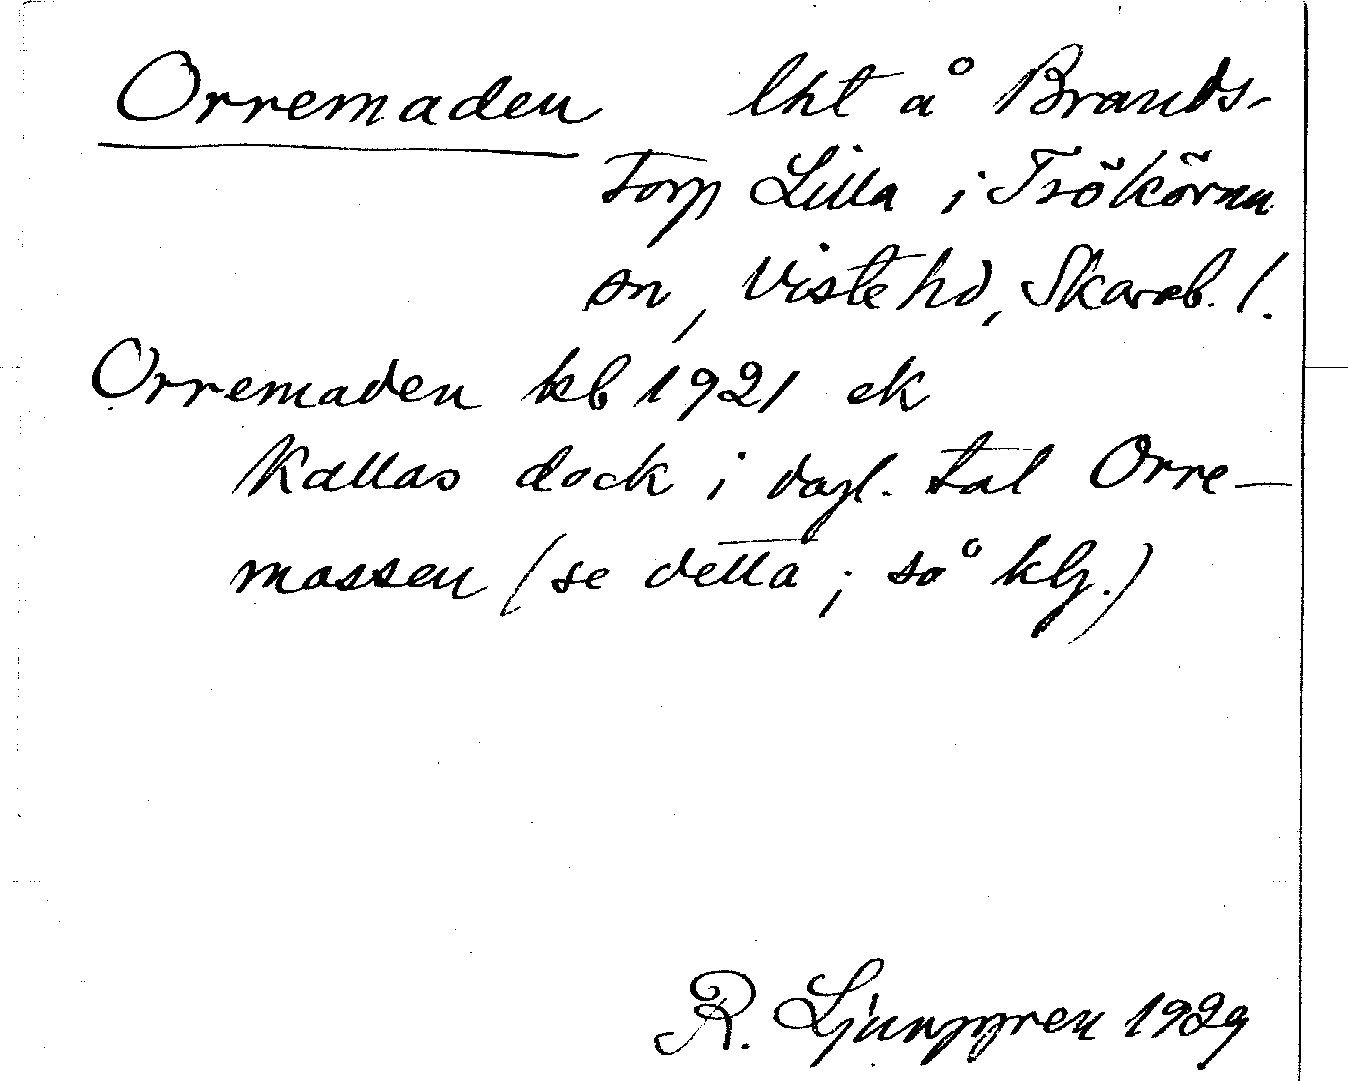 Orremaden lht å Brands-
torp Lilla i Tråkärna
sn, Viste hd, Skarab. l.
Orremaden kb 1921 ek
Kallas dock i dagl. tal Orre-
mossen (se detta; så klg.)
R. Ljunggren 1929